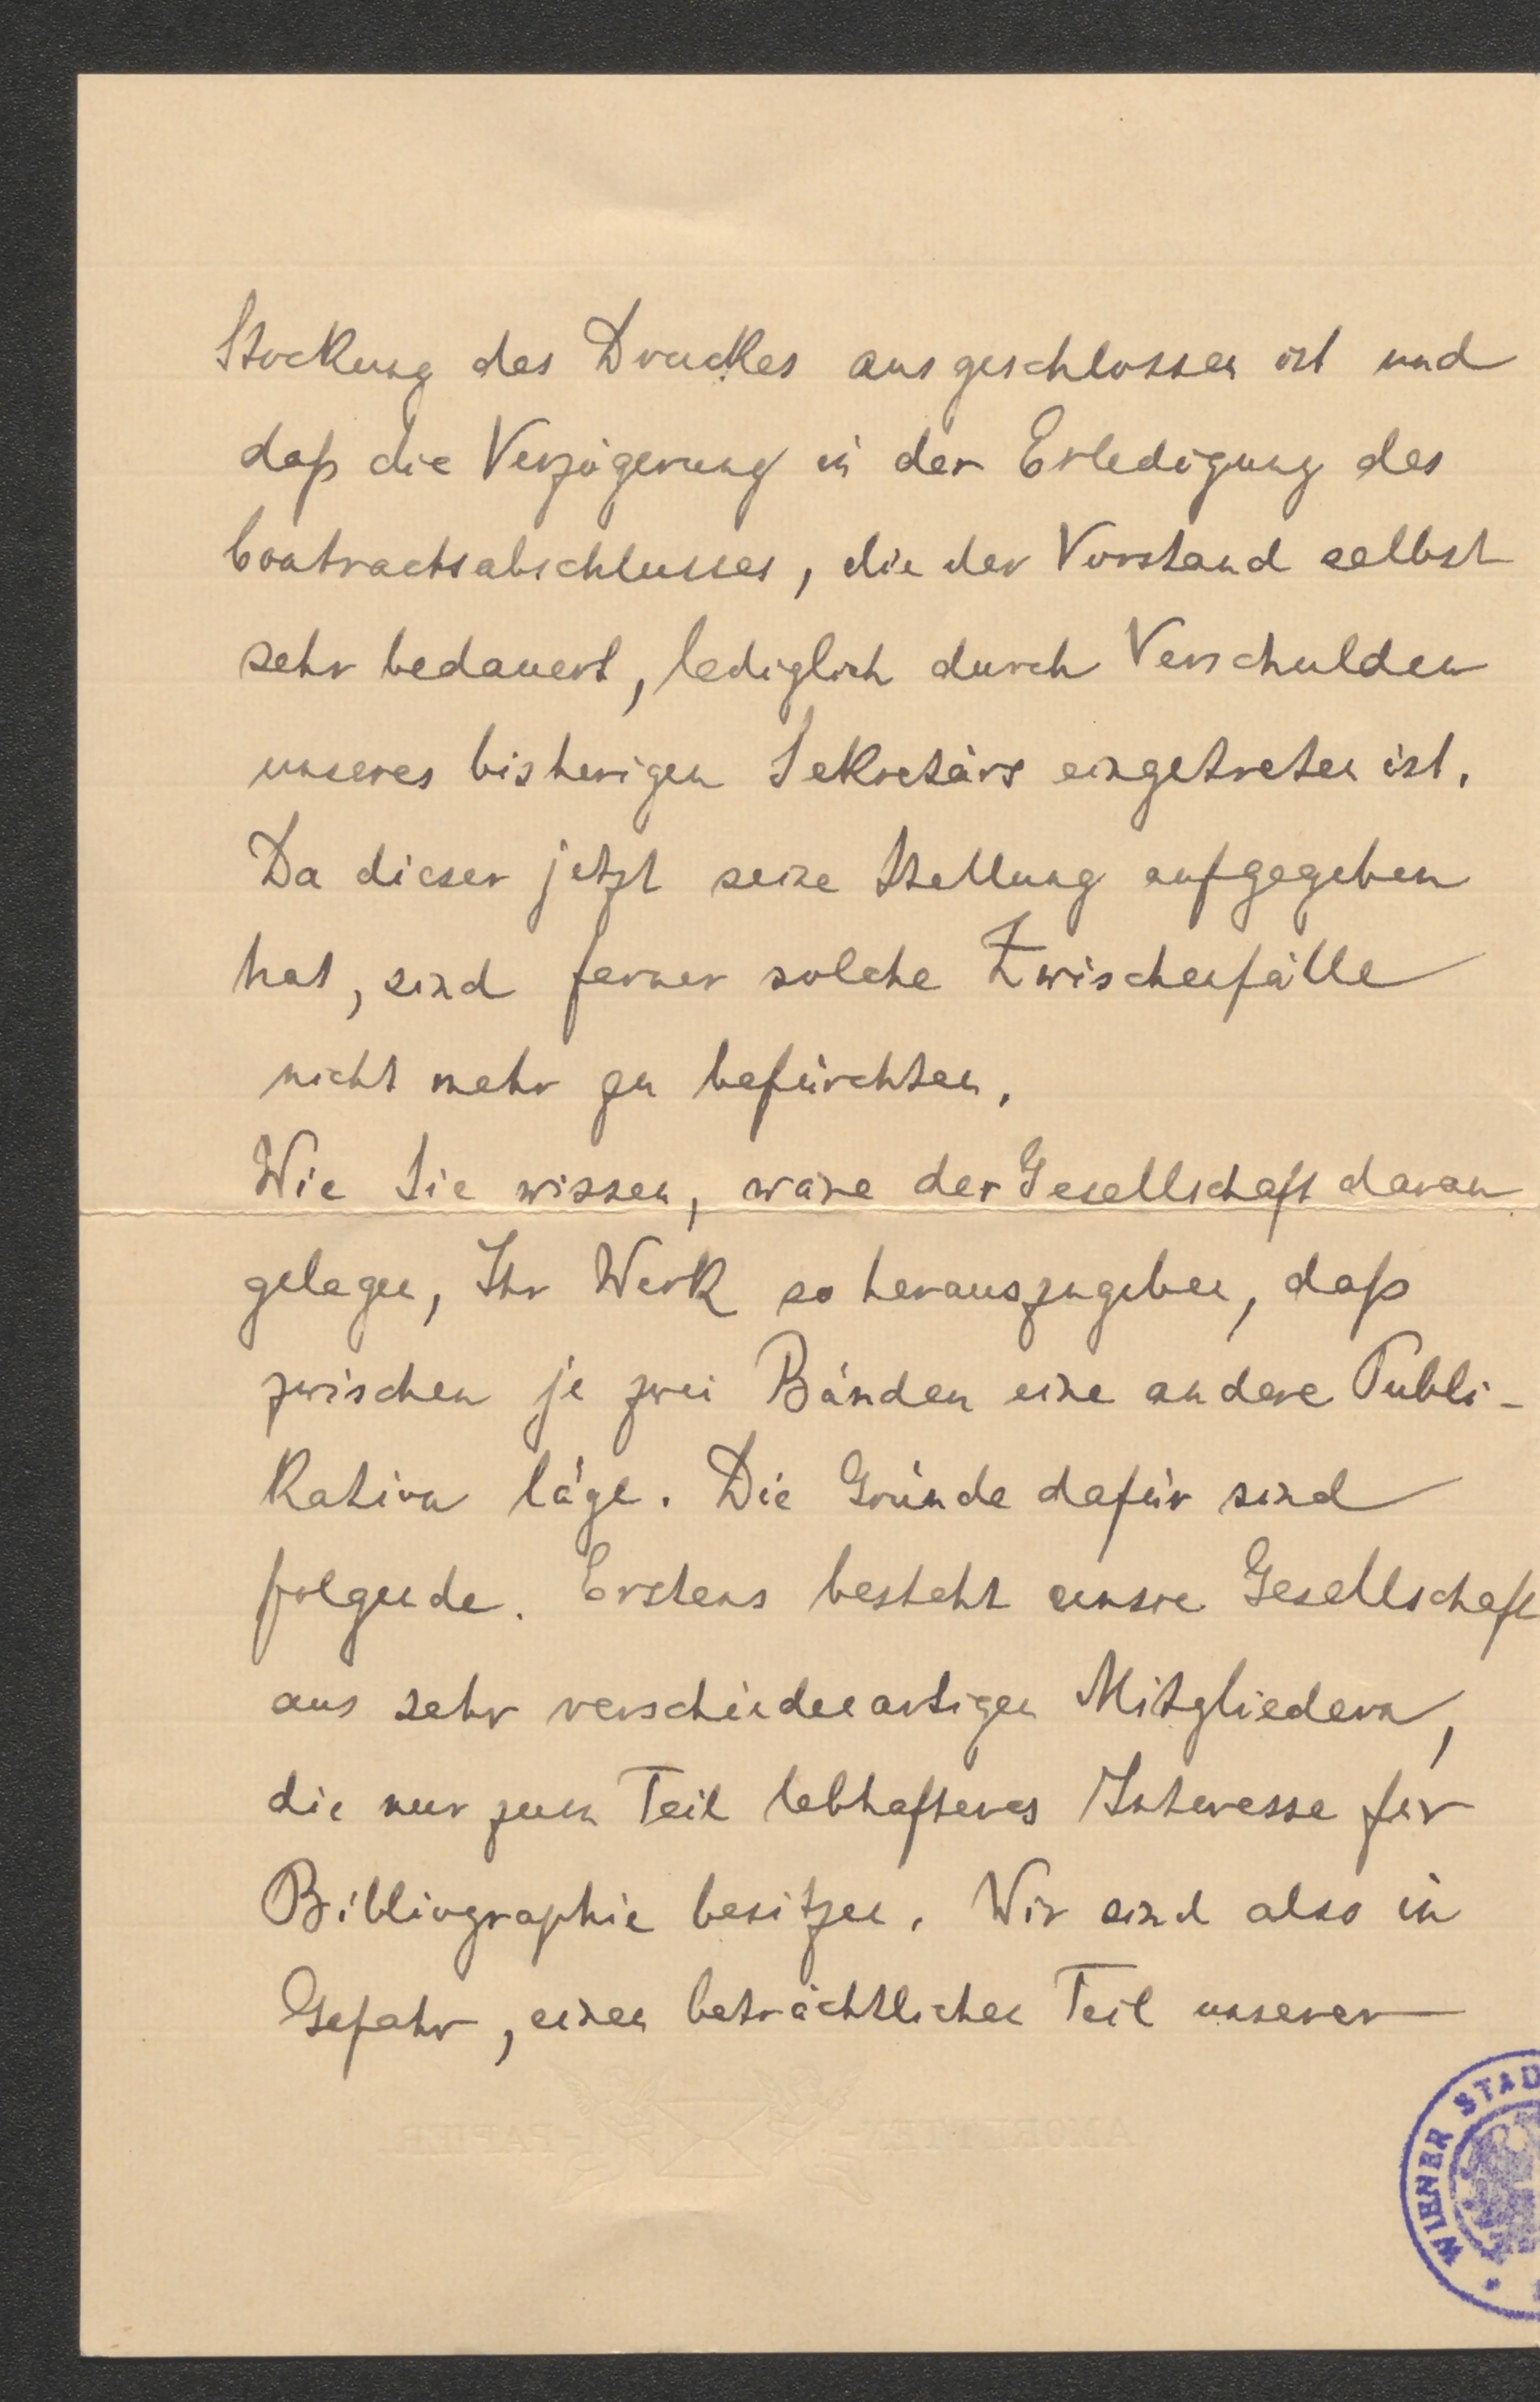 Stockung des Druckes ausgeschlossen ist und
daß die Verzögerung in der Erledigung des
Contractsabschlusses, die der Vorstand selbst
sehr bedauert, lediglich durch Verschulden
unseres bisherigen Sekretärs eingetreten ist.
Da dieser jetzt seine Stellung aufgegeben
hat, sind ferner solche Zwischenfälle
nicht mehr zu befürchten.
Wie Sie wissen, wäre der Gesellschaft daran
gelegen, Ihr Werk so herauszugeben, daß
zwischen je zwei Bänden eine andere Publi-
kation läge. Die Gründe dafür sind
folgende. Erstens besteht unsre Gesellschaft
aus sehr verschiedenartigen Mitgliedern,
die nur zum Teil lebhafteres Interesse für
Bibliographie besitzen. Wir sind also in
Gefahr, einen beträchtlichen Teil unserer
WIENER STAD